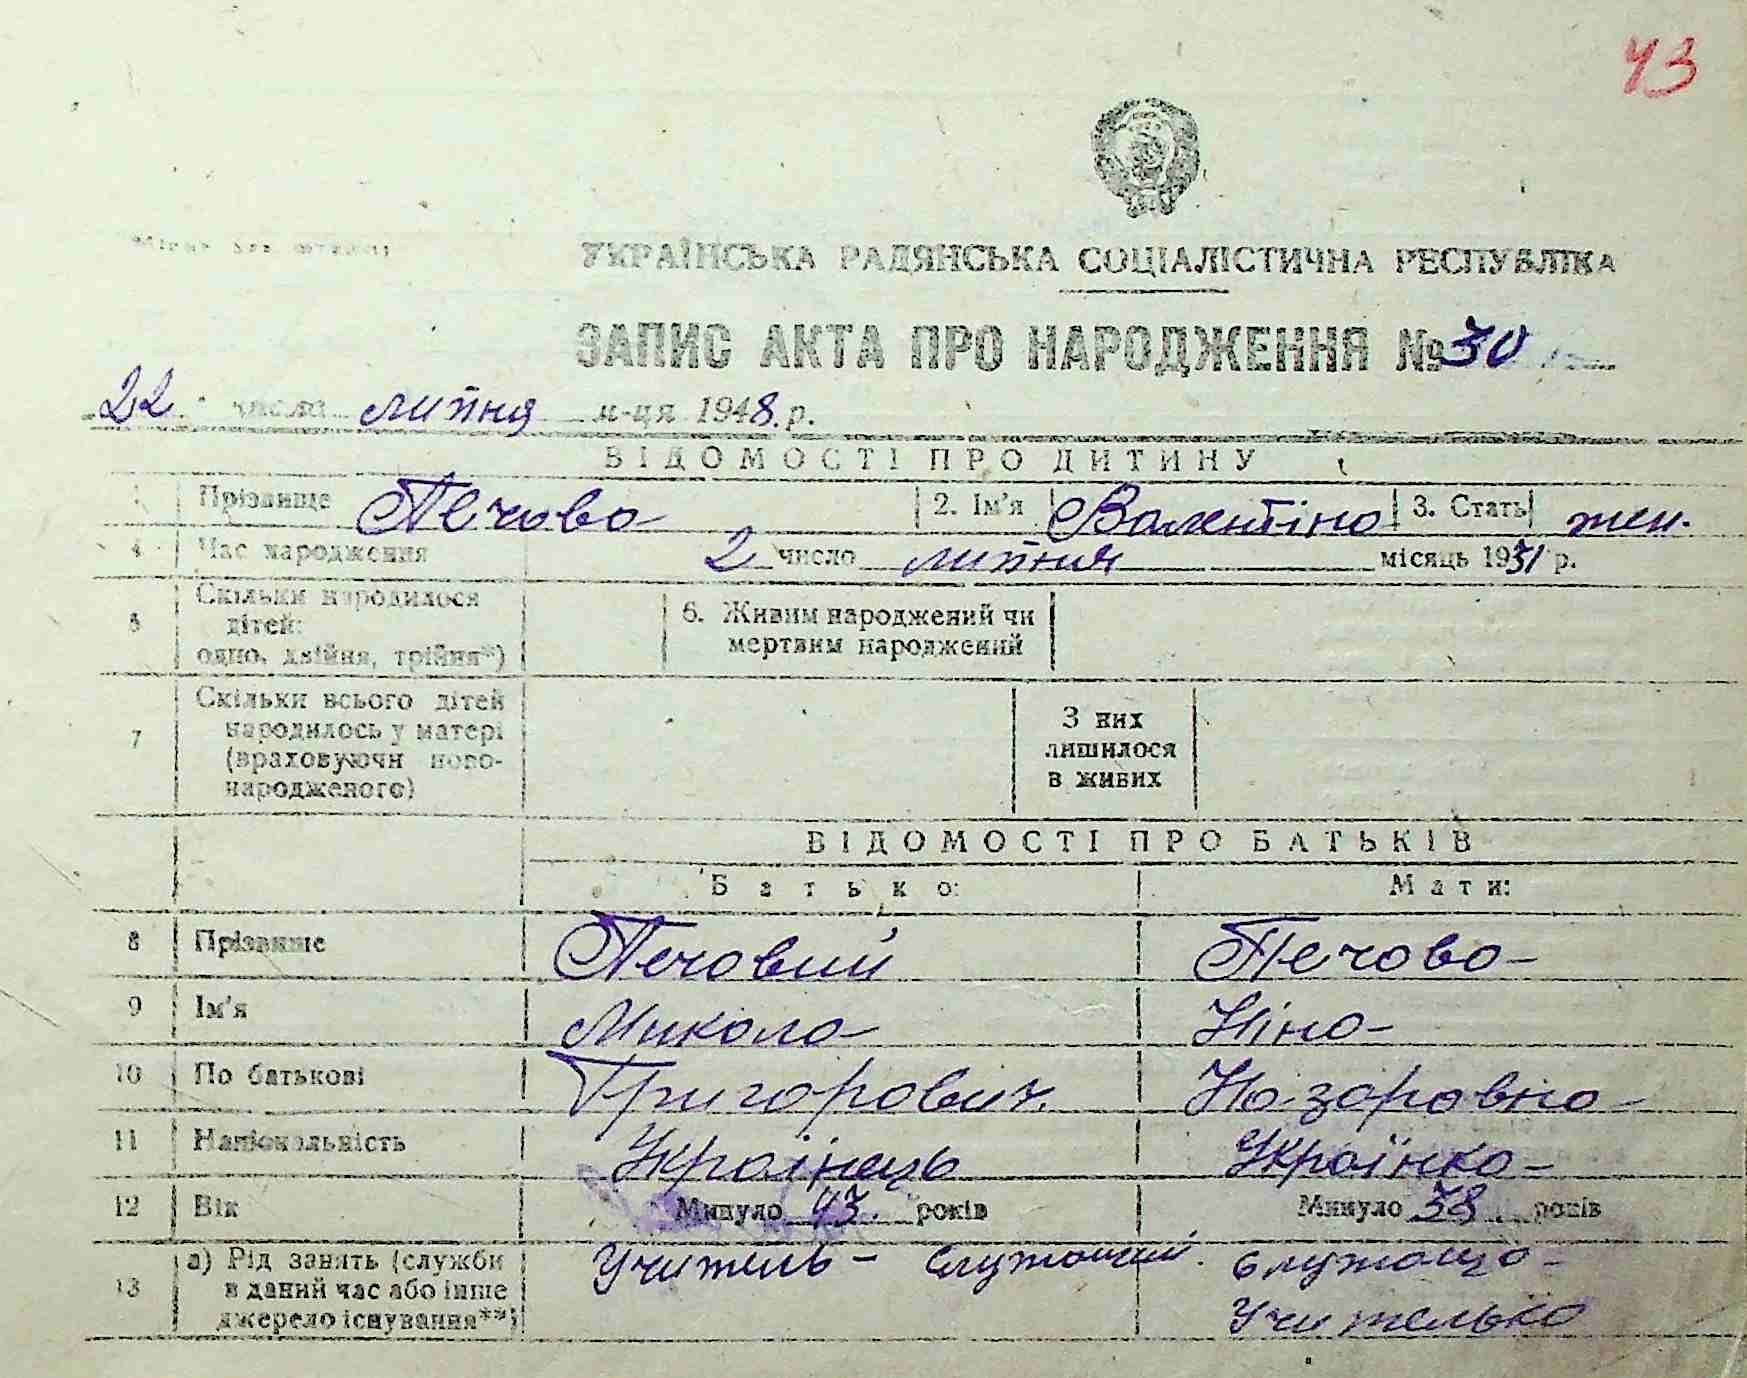 43
Місце для штампу
УКРАЇНСЬКА РАДЯНСЬКА СОЦІАЛІСТИЧНА РЕСПУБЛІКА
ЗАПИС АКТА ПРО НАРОДЖЕННЯ № 30
22 число липня м-ця 1948 р.
ВІДОМОСТІ ПРО ДИТИНУ
1 Прізвище Печова 2. Ім'я Валентіна 3. Стать жен.
4 Час народження 2 число липня місяць 1931 р.
5 Скільки народилося дітей: одно, двійня, трійня*) 6. Живим народжений чи мертвим народжений
7 Скільки всього дітей народилось у матері (враховуючи новонародженого) З них лишилося в живих
ВІДОМОСТІ ПРО БАТЬКІВ
Батько: Мати:
8 Прізвище Печовий Печова
9 Ім'я Микола Ніна
10 По батькові Григорович Назаровна
11 Національність Українець Українка
12 Вік Минуло 43 років Минуло 38 років
13 а) Рід занять (служби в даний час або інше джерело існування**) Учитель - служащий. служаща - Учителька